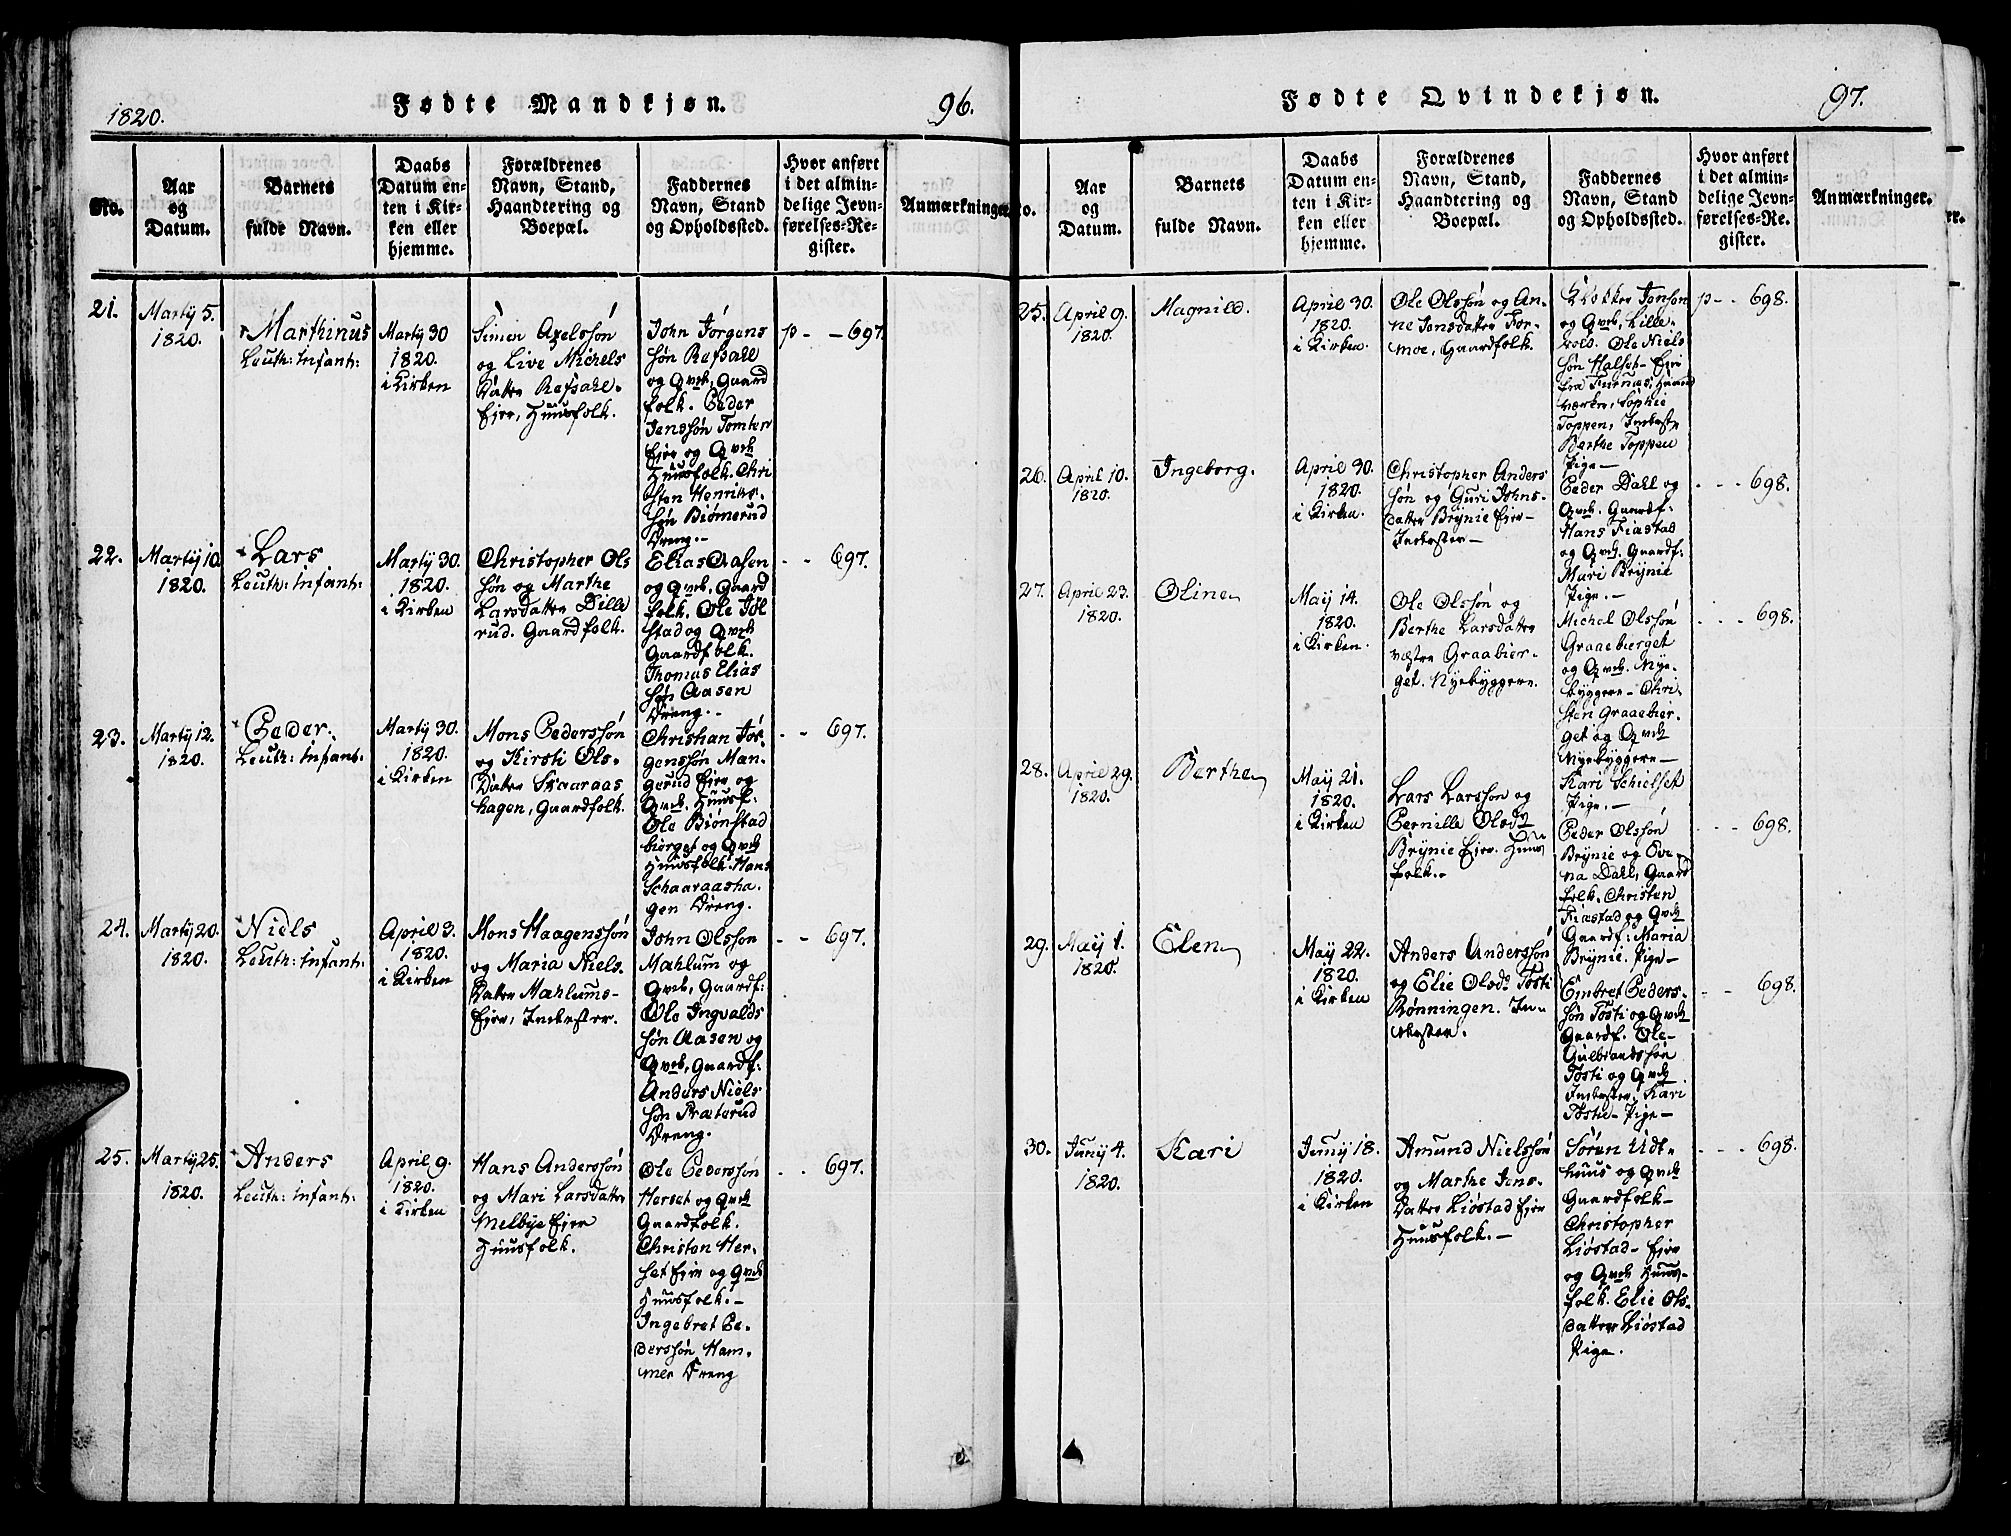 1820.
Fødte Mandkjøn.
96.
No.
Aar
og
Datum.
Barnets
fulde Navn.
Daabs
Datum en-
ten i Kir-
ken eller
hjemme.
Forældrenes
Navn, Stand,
Haandtering og
Boepæl.
Faddernes
Navn, Stand
og Opholdssted.
Hvor anført
i det almin-
delige Jevn-
førelses-Re-
gister.
Anmærkninger.
21.
Martÿ 5.
1820.
Marthinus
Leuth: Infant:
Martÿ 30
1820.
i Kirken
Simen Axelssøn
og Live Michels
Datter Refsahl-
Eier, Huusfolk.
John Jørgens
søn Refsahl
og Qvrk, Gaard
folk. Peder
Jenssøn Tomten
Eier og Qvrk
Huusfolk. Chri
sten Henriks-
søn Biømerud
Dreng.-
p - - 697.
22.
Martÿ 10
1820.
Lars
Leuth: Infant:
Martÿ 30.
1820.
i Kirken
Christopher Ols
søn og Marthe
Larsdatter Dille
rud. Gaardfolk.
Elias Aasen
og Qvrk, Gaard
folk. Ole Jøl
stad og Qvrk
Gaardfolk.
Thomas Elias
søn Aasen
Dreng.-
- - 697.
23.
Martÿ 12.
1820.
Peder.
Leuth: Infant:
Martÿ 30.
1820.
i Kirken
Mons Pederssøn
og Kirsti Ols-
Datter Skaaraas
hagen, Gaardfolk.
Christian Jør-
genssøn Man-
gerud Eier og
Qvrk. Huusf:
Ole Biønstad
bierget og Qvrk
Huusfolk. Hans
Schaaraasha-
gen Dreng.
- - 697.
24.
Martÿ 20.
1820.
Niels
Leuth: Infant:
April 3.
1820.
i Kirken
Mons Haagenssøn
og Maria Niels-
Datter Mahlums-
Eier, Inderster.
John Olsson
Mahlum og
Qvrk, Gaardf:
Ole Ingvalds
søn Aasen og
Qvrk, Gaardf:
Anders Niels
søn Præterud
Dreng.
- - 697.
25.
Martÿ 25.
1820.
Anders
Leuth: Infant:
April 9.
1820.
i Kirken
Hans Anderssøn
og Mari Larsdatter
Melbye Eier
Huusfolk.
Ole Pederssøn
Herset og Qvrk
Gaardfolk.
Christen Her-
set Eier og Qvrk
Huusfolk.-
Ingebret Pe-
derssøn Ham-
mer Dreng
- - 697.
Fødte Qvindekjøn.
97.
No.
Aar
og
Datum.
Barnets
fulde Navn.
Daabs
Datum en-
ten i Kir-
ken eller
hjemme.
Forældrenes
Navn, Stand,
Haandtering og
Boepæl.
Faddernes
Navn, Stand
og Opholdssted.
Hvor anført
i det almin-
delige Jevn-
førelses-Re-
gister.
Anmærkninger.
25.
April 9.
1820.
Magnild.
April 30.
1820.
i Kirken.
Ole Olssøn og An-
ne Jensdatter For-
moe, Gaardfolk.
Jonson
og Qvrk, Lille-
vold. Ole Niels
søn Halset- Eier
fra Furnæs, Haand
værker, Sophie
Toppen, Inderst
Berthe Toppen
Pige-
p - - 698.
26.
April 10.
1820.
Ingeborg.
April 30.
1820.
i Kirken.
Christopher Anders
søn og Guri Johns-
datter Brÿnie Eier-
Inderster-
Peder Dahl og
Qvrk. Gaardf-
Hans Fiæstad
og Qvrk. Gaardf:
Mari Brÿnie
Pige.-
- - - 698.
27.
April 23.
1820.
Oline
Maÿ 14.
1820.
i Kirken.
Ole Olssøn og
Berthe Larsdatter
væstre Graabier-
get. Nyebyggere.
Michel Olssøn
Graaebierget
og Qvrk. Nye-
byggere- Chri-
sten Graaebier-
get og Qvrk
Nyebyggere-
Kari Schielset
Pige.-
- - - 698.
28.
April 29.
1820.
Berthe
Maÿ 21.
1820.
i Kirken
Lars Larssøn og
Pernille Olsdr
Brÿnie Eier. Huus
folk.-
Peder Olssøn
Brÿnie og Ove-
na Dahl, Gaard
folk. Christen
Fiæstad og Qvrk
Gaardf: Maria
Brÿnie. Pige-
- - - 698.
29.
Maÿ 1.
1820.
Elen
Maÿ 22.
1820.
i Kirken
Anders Anderssøn
og Elie Olsdr Tøsti
Rønningen. In-
derster.
Embret Peders-
søn Tøsti og Qvrk
Gaardf. Ole
Gulbrandssøn
Tøsti og Qvrk
Inderster. Kari
Tøstie- Pige-
- - 698.
30.
Junÿ 4.
1820.
Kari
Junÿ 18.
1820.
i Kirken
Amund Nielssøn
og Marthe Jens-
Datter Liøstad Eier
Huusfolk.-
Søren Udt-
huus og Qvrk
Gaardfolk-
Christopher
Liøstad- Eier
og Qvrk Huus-
folk. Elie Ols-
datter Liøstad
Pige.
- - - 698.